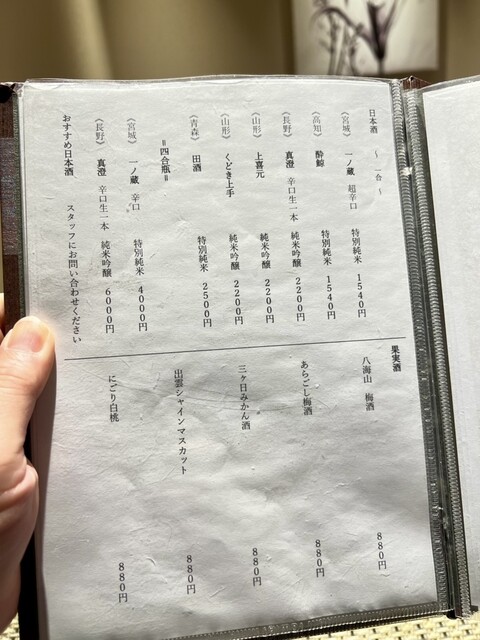 日本酒 ～ 一合 ～
《宮城》 一ノ蔵 超辛口 特別純米 1540円
《高知》 酔鯨 特別純米 1540円
《長野》 真澄 辛口生一本 純米吟醸 2200円
《山形》 上喜元 純米吟醸 2200円
《山形》 くどき上手 純米吟醸 2200円
《青森》 田酒 特別純米 2500円
＝四合瓶＝
《宮城》 一ノ蔵 辛口 特別純米 4000円
《長野》 真澄 辛口生一本 純米吟醸 6000円
おすすめ日本酒 スタッフにお問い合わせください
果実酒
八海山 梅酒 880円
あらごし梅酒 880円
三ヶ日みかん酒 880円
出雲シャインマスカット 880円
にごり白桃 880円